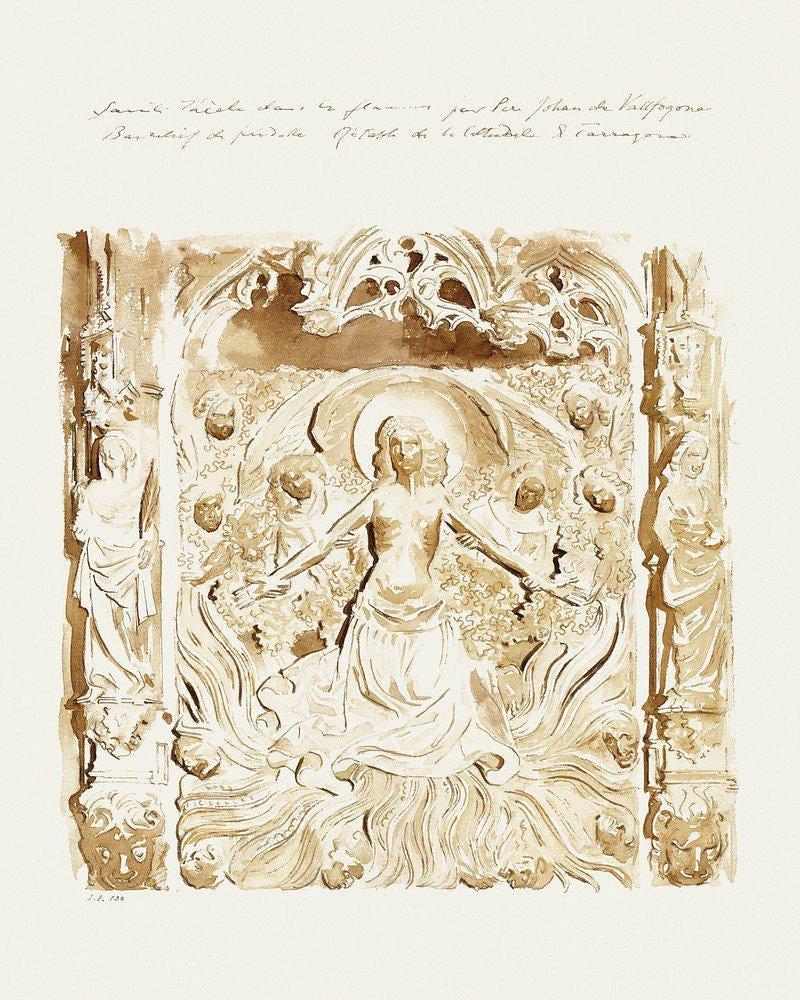 Sainte Thècle dans les flammes par Pere Johan de Vallfogona
Bas relief de prédelle Rétable de la Cathédrale de Tarragona
J.S. 130